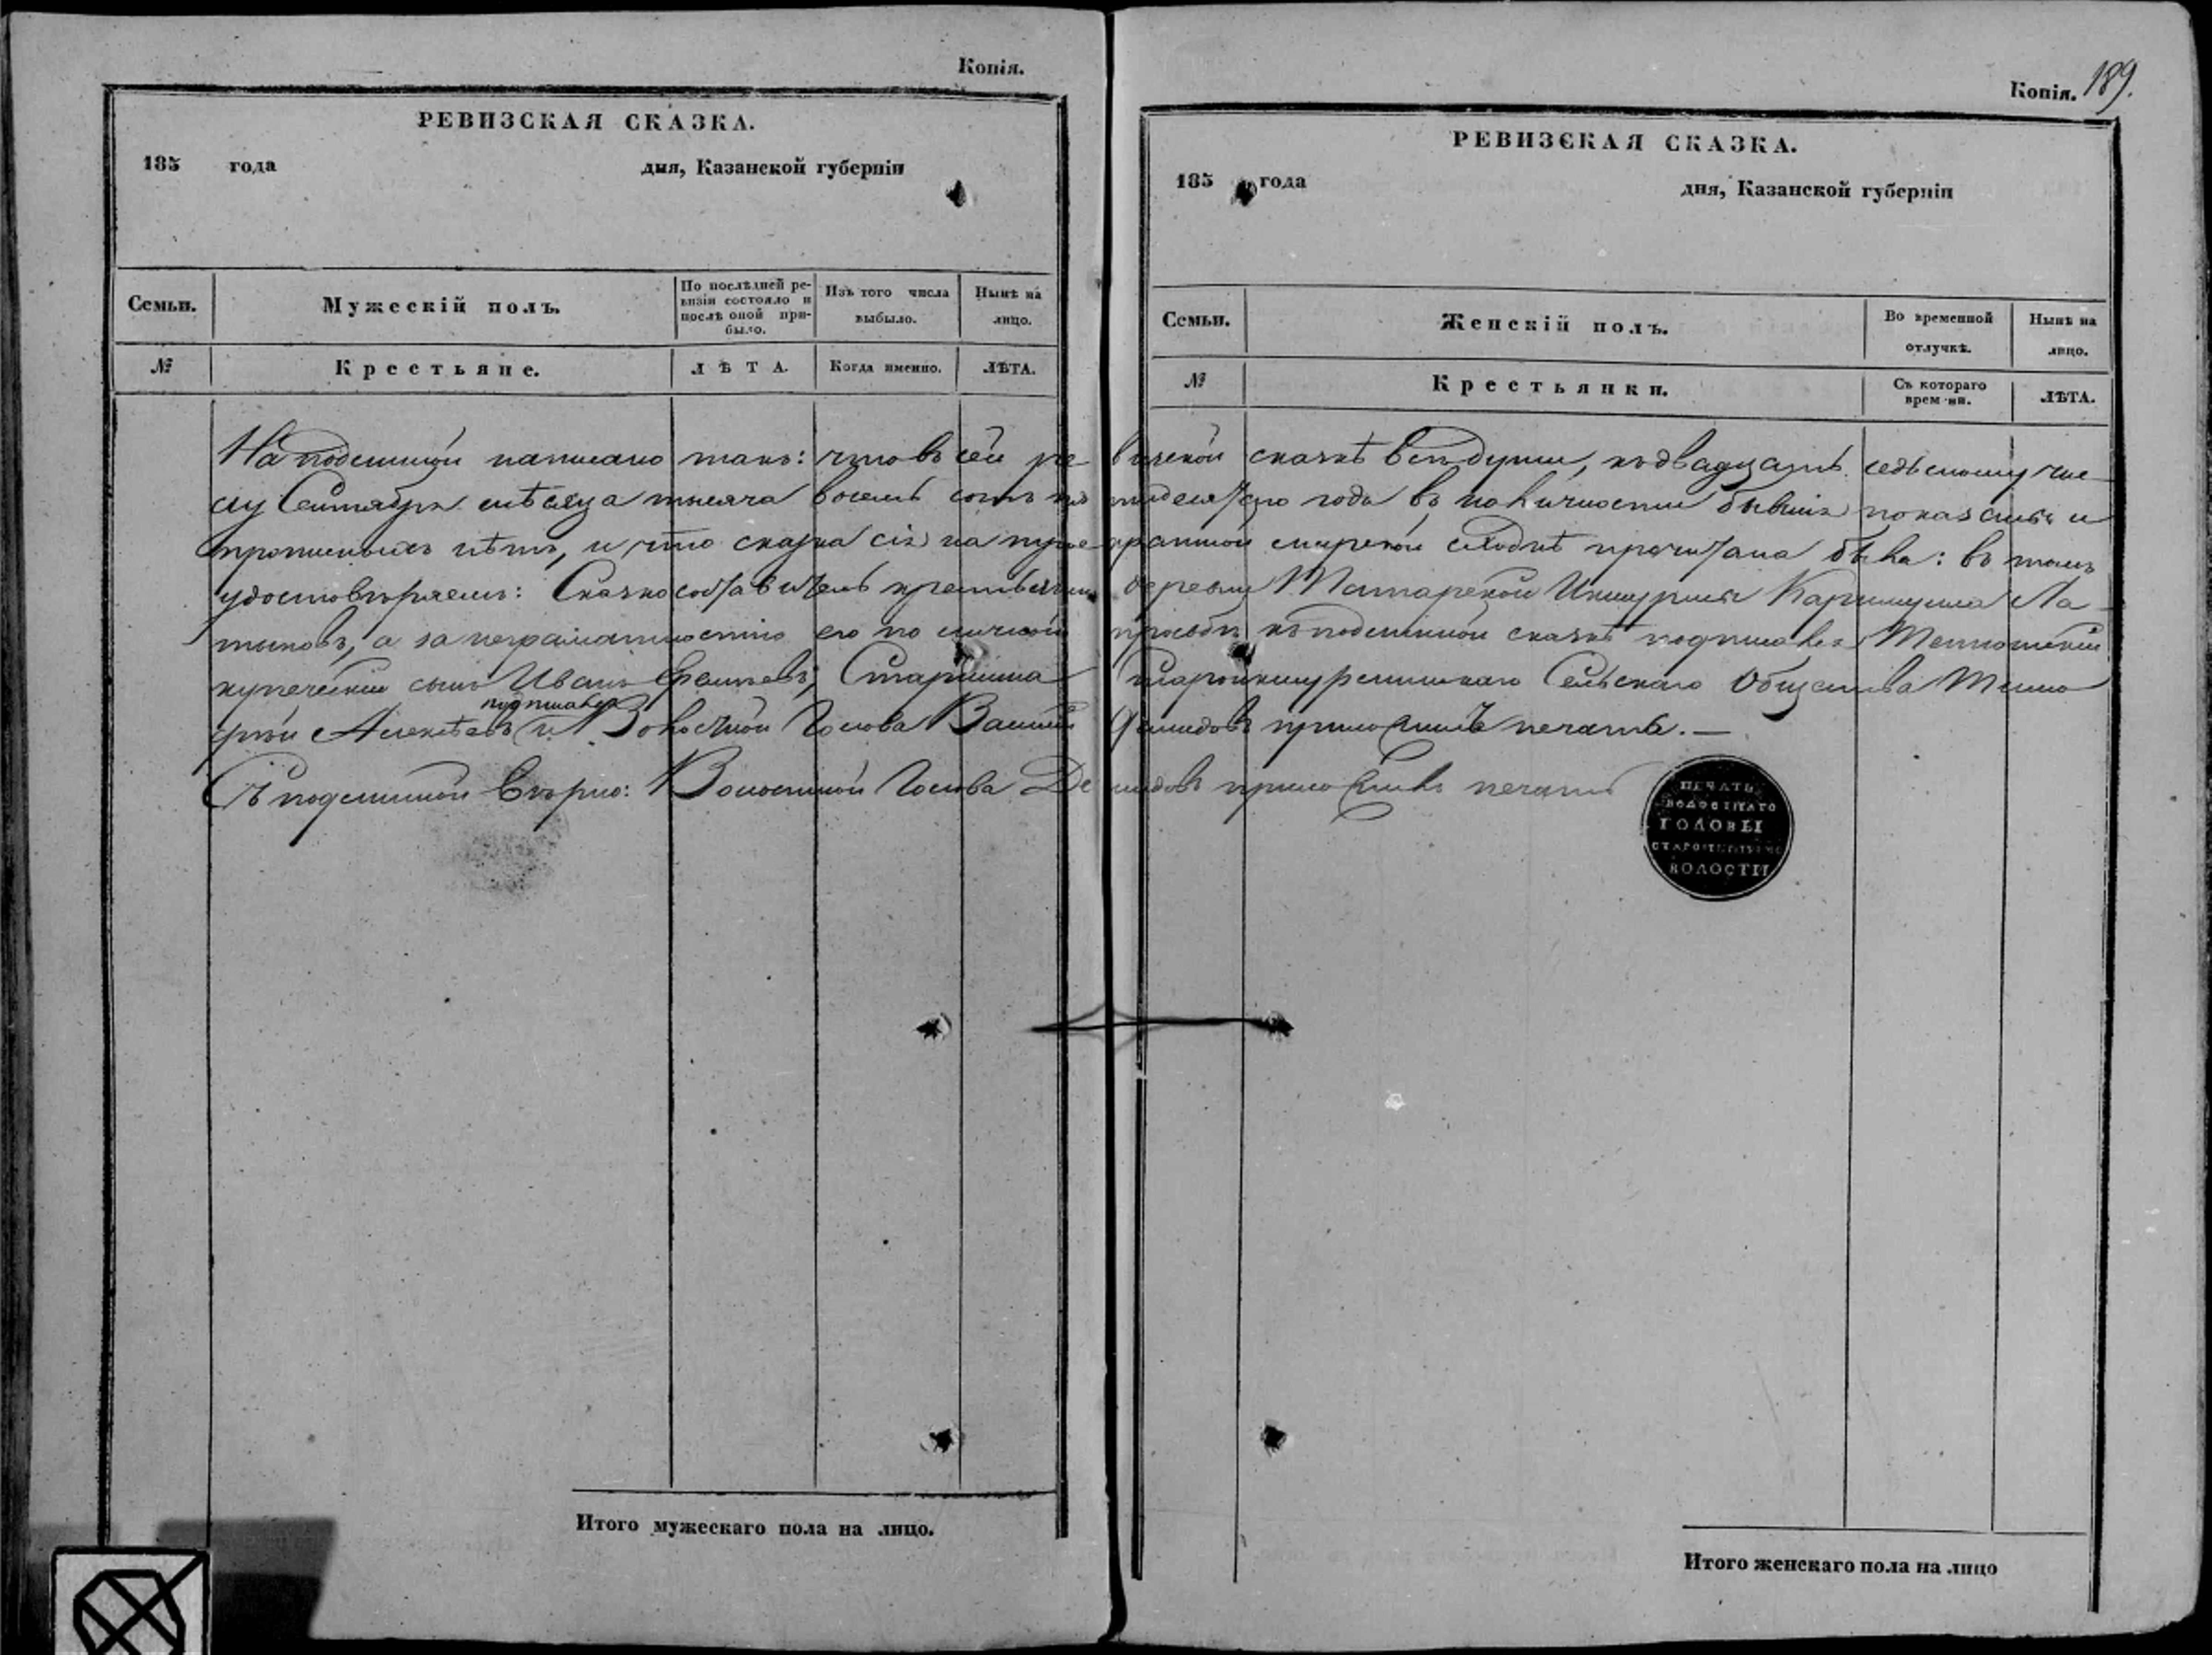 Копія.
РЕВИЗСКАЯ СКАЗКА.
185 года дня, Казанской губерніи
Семьи.
Мужескій полъ.
По послѣдней ре-
визіи состояло и
послѣ оной при-
было.
Изъ того числа
выбыло.
Нынѣ на
лицо.
№
Крестьяне.
ЛѢТА.
Когда именно.
ЛѢТА.
Копія. 189.
РЕВИЗСКАЯ СКАЗКА.
185 года дня, Казанской губерніи
Семьи.
Женскій полъ.
Во временной
отлучкѣ.
Нынѣ на
лицо.
№
Крестьянки.
Съ котораго
врем ни.
ЛѢТА.
На подлинной написано такъ: что въ сей ре визской сказкѣ всѣ души, къ двадцать седьмому чис
лу Сентября мѣсяца тысяча восемь сотъ пятидесятаго года въ наличности бывшія показаны и
прописныхъ нѣтъ, и что сказка сія на мирской сходкѣ прочитана была: въ томъ
удостовѣряемъ: Сказкосоставитель крестьянинъ деревни Татарской Ла
тыповъ, а за неграмотностію его по личной просьбѣ къ подлинной сказкѣ подписался
купеческій сынъ Иванъ Старшина Сельскаго Общества Тимо
фѣй Алексѣевъ подписался и Волостной Голова Василій Демидовъ приложилъ печать. —
Съ подлинной вѣрно: Волостной Голова Де мидовъ приложилъ печать
ПЕЧАТЬ
ВОЛОСТНАГО
ГОЛОВЫ
ВОЛОСТИ
Итого мужескаго пола на лицо.
Итого женскаго пола на лицо